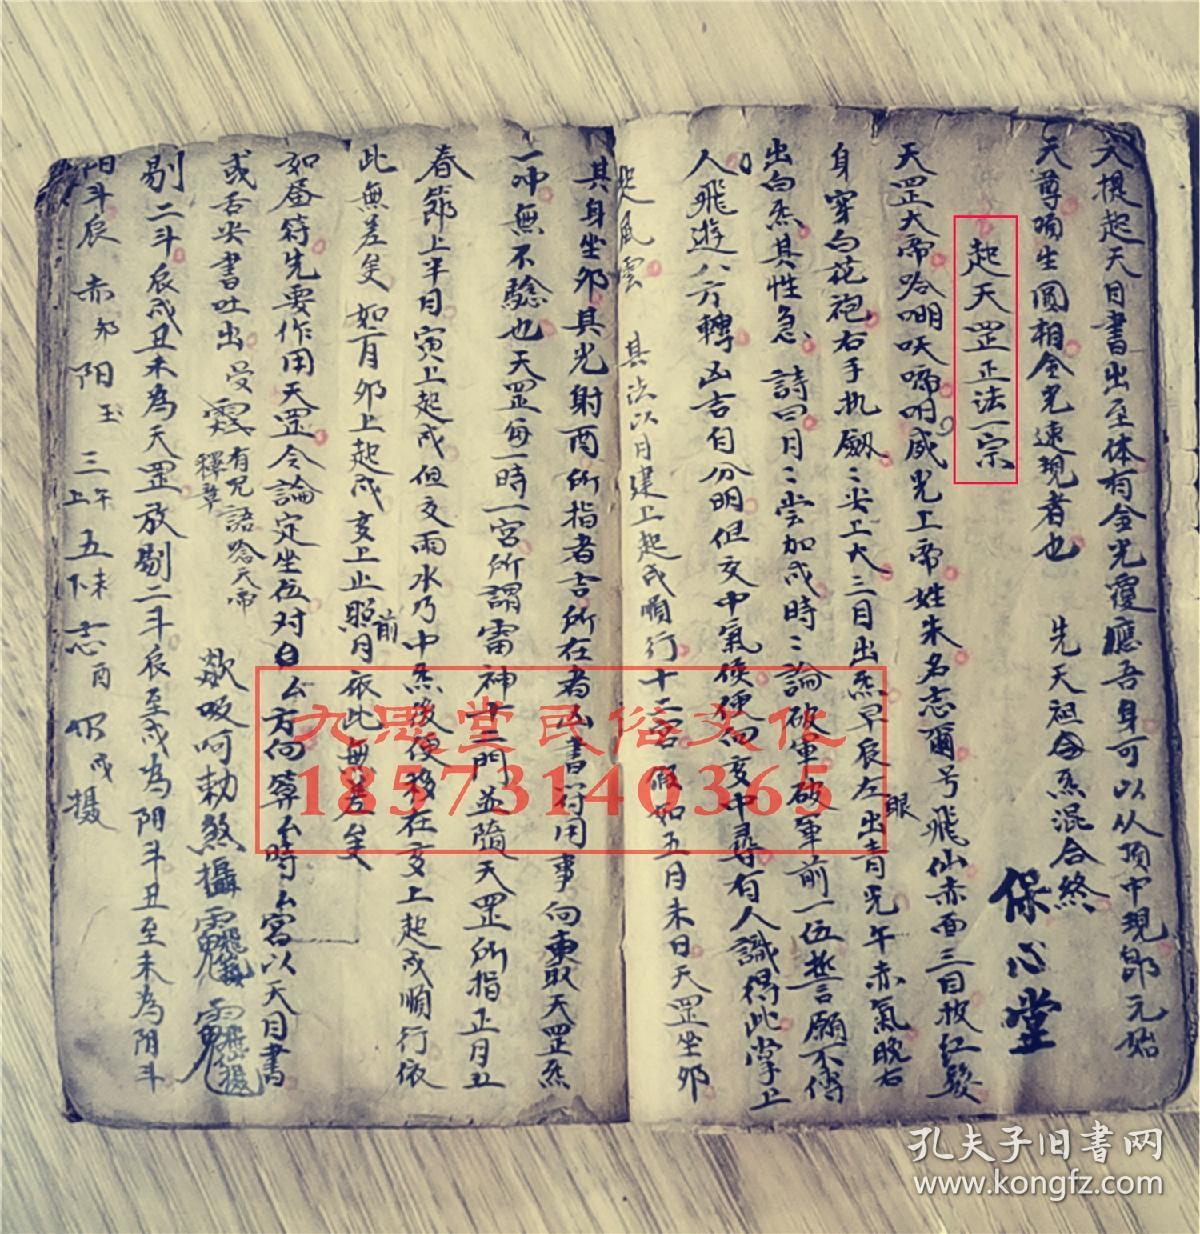 大提起天目書出至体有金光覆應吾身可以从頂中現即元始
天尊頂生圓相金光速現者也 先天祖炁混合終
保心堂
起天罡正法一宗
天罡大帝 威光上帝姓朱名志爾号飛仙赤面三目披红髮
身穿白花袍右手执劍 大三目出炁早辰左眼出青光午赤氣晚右
出白炁其性急 詩曰月〻尝加戌時〻論破軍破軍前一伍誓願不傳
人飛遊八方轉凶吉自分明但交中氣後便向亥中尋有人識得此掌上
起風雲 其法以月建上起戌順行十二宮假如五月未日天罡坐卯
其身坐卯其光射酉所指者吉所在者凶書符用事向東取天罡炁
一冲無不驗也天罡每一時一宮所謂雷神十二門並隨天罡所指正月立
春節上半月寅上起戌但交雨水乃中炁後便移在亥上起戌順行依
此無差矣如二月卯上起戌亥上止照前月依此無差矣
如書符先要作用天罡令論定坐伍对 方向算 時 宮以天目書
或舌尖書吐出 有咒語 天帝 釋章 歘吸呵勅煞攝
剔二斗辰戌丑未為天罡放剔二斗辰至戌為阴斗丑至未為阳斗
阳斗辰 赤卯 阳玉 三午上 五未下 志酉 仍戌 摄
九思堂民俗文化
18573140365
孔夫子旧書网
www.kongfz.com